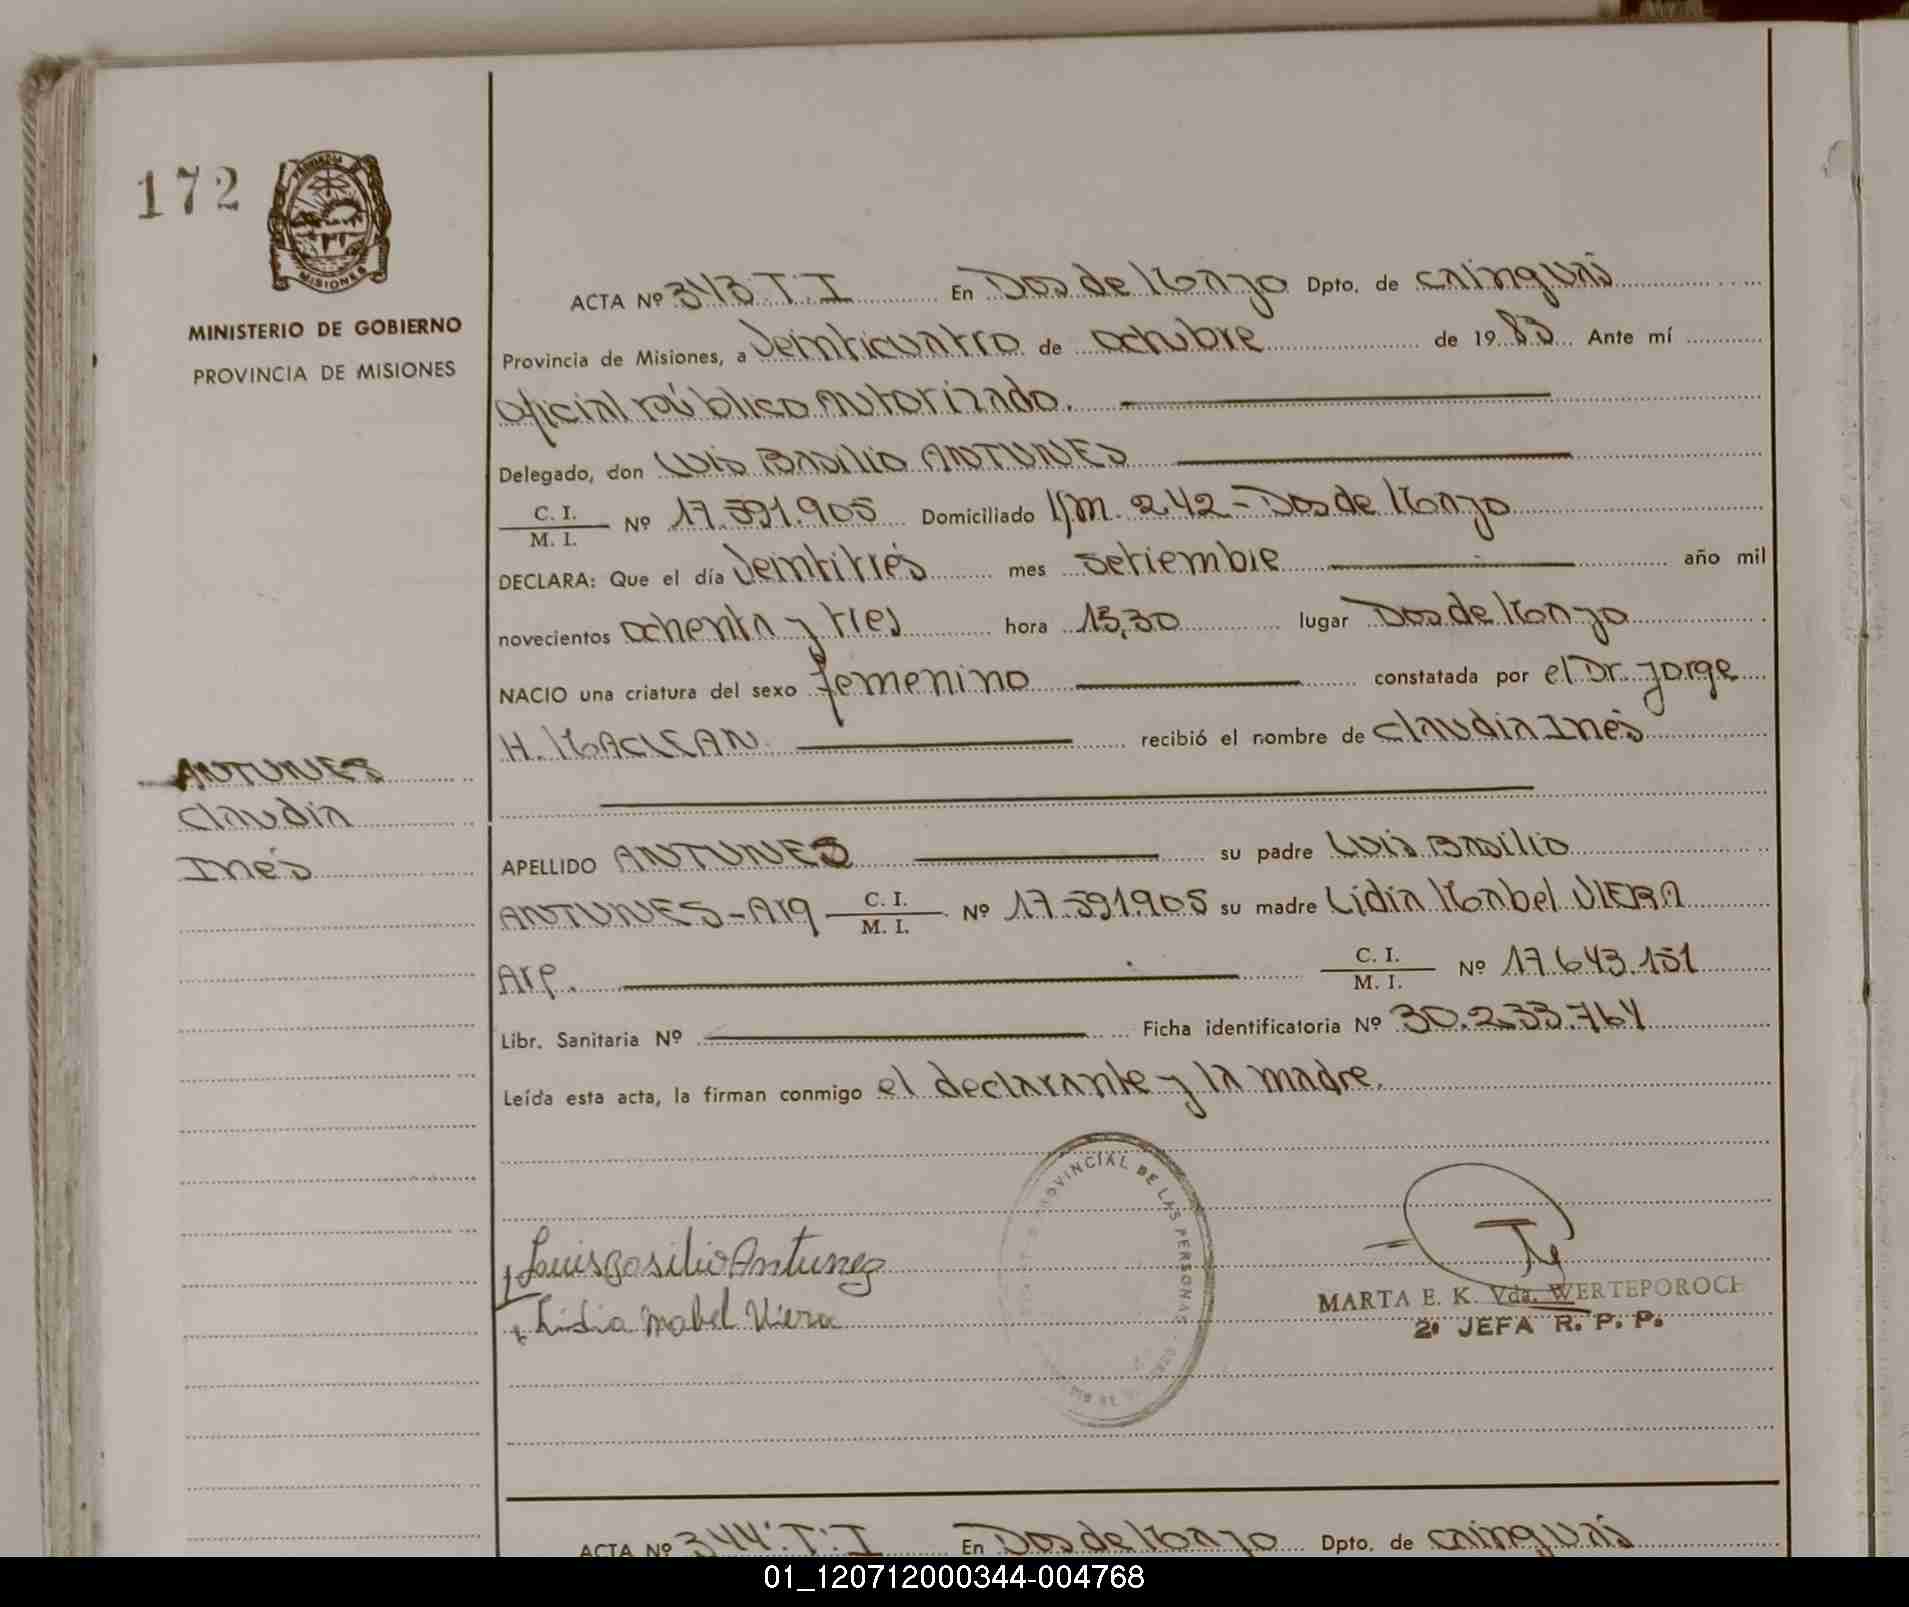 172
PROVINCIA DE
MISIONES
MINISTERIO DE GOBIERNO
PROVINCIA DE MISIONES
ACTA Nº 343.T.I En Dos de Mayo Dpto. de Cainguás
Provincia de Misiones, a Veinticuatro de octubre de 1983 Ante mí
oficial público autorizado.
Delegado, don Luis Basilio ANTUNES
C. I.
M. I. Nº 17.591.905 Domiciliado Km. 242 - Dos de Mayo
DECLARA: Que el día Veintitrés mes setiembre año mil
novecientos ochenta y tres hora 15,30 lugar Dos de Mayo
NACIO una criatura del sexo femenino constatada por el Dr. Jorge
H. MACLEAN. recibió el nombre de Claudia Inés
ANTUNES
Claudia
Inés
APELLIDO ANTUNES su padre Luis Basilio
ANTUNES - Arg C. I.
M. I. Nº 17.591.905 su madre Lidia Mabel VIERA
Arg. C. I.
M. I. Nº 17.643.151
Libr. Sanitaria Nº Ficha identificatoria Nº 30.233.764
Leída esta acta, la firman conmigo el declarante y la madre.
PROVINCIAL DE LAS PERSONAS
Luis Basilio Antunez
Lidia Mabel Viera
MARTA E. K. Vda. WERTEPOROCH
2º JEFA R. P. P.
ACTA Nº 344.T.I En Dos de Mayo Dpto. de Cainguás
01_120712000344-004768